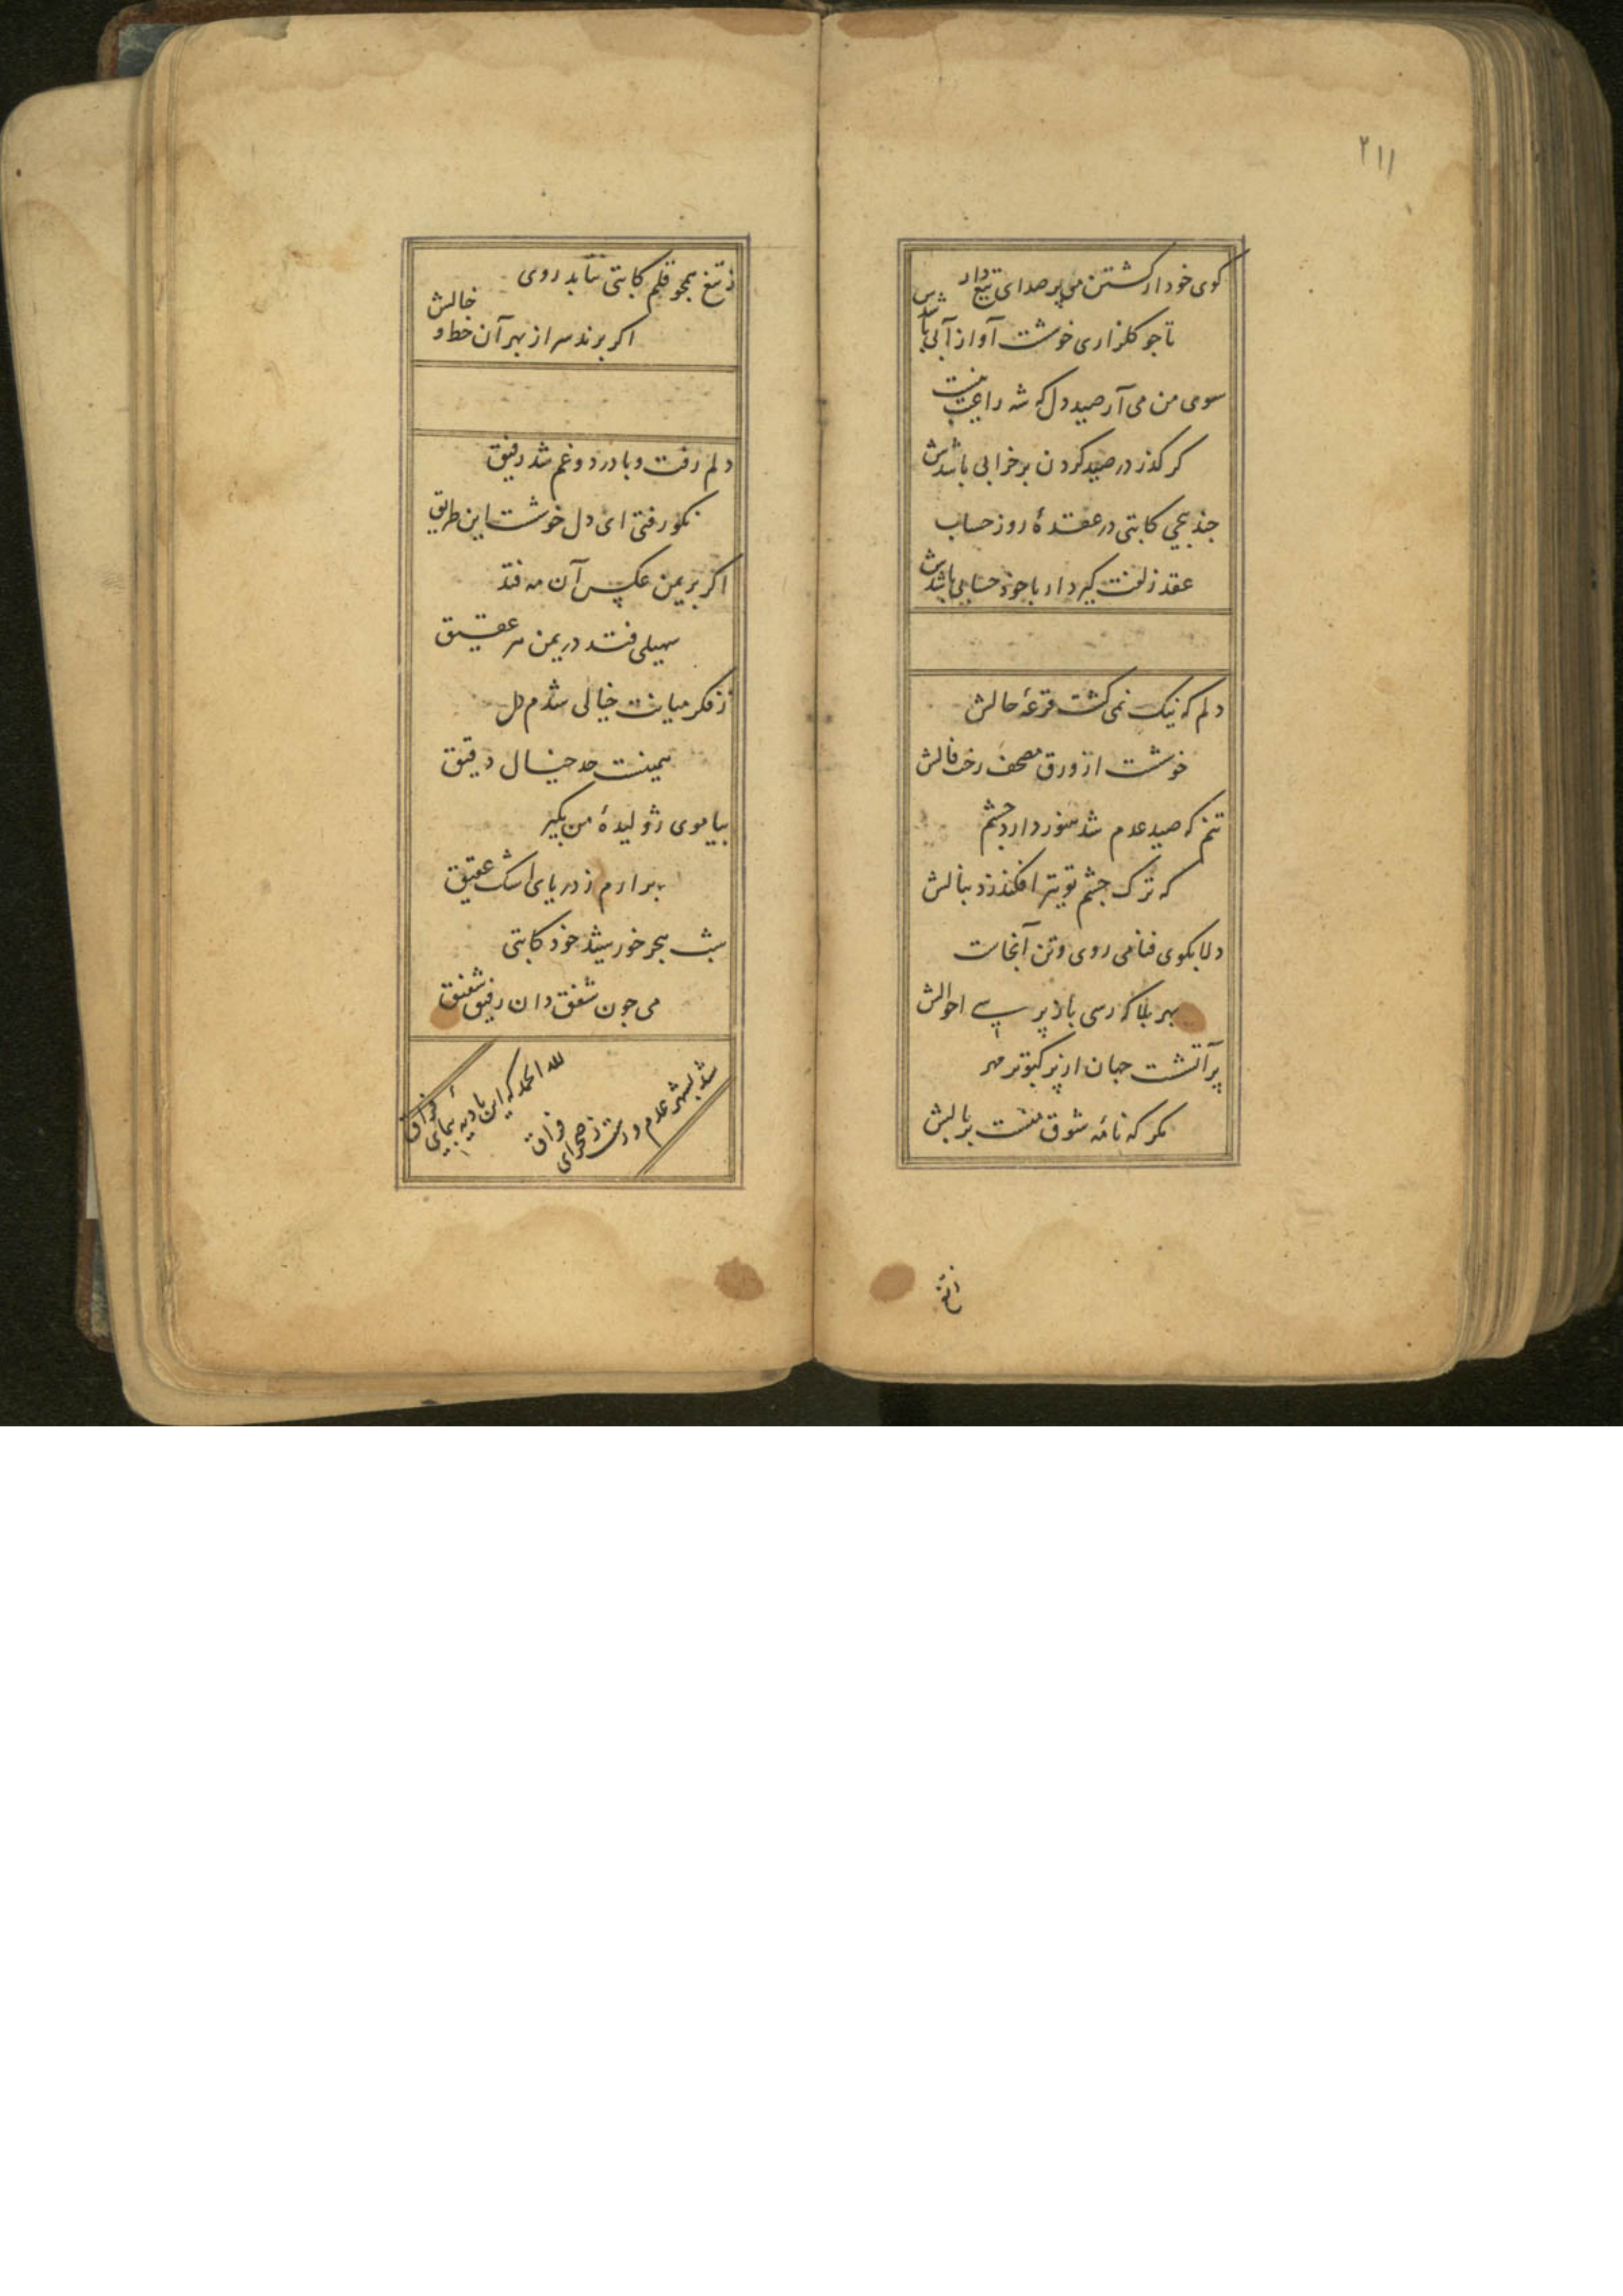 ۲۱۱
کوی خود از کشتن می پر صدای تیغ دار
تا جو کلزاری خوشت آواز آبی باشدش
سوی من می آر صید دل که شه را عیب نیست
کر کذر در صید کردن بر خرابی باشدش
جند بیچی کاتبی در عقدهٔ روز حساب
عقد زلفت کیر دار با خود حسابی باشدش
دلم که نیک نمی کشت قرعهٔ حالش
خوشت از ورق مصحف رخت فالش
تنم که صید عدم شد هنوز دارد جشم
که ترک جشم تو تیر افکند ز دنبالش
دلا بکوی فنا می روی و تن آنجاست
بهر بلا که رسی باز پرسی احوالش
پر آتشت جهان از پر کبوتر مهر
مکر که نامه شوق منست بر بالش
ز تیغ
ز تیغ همجو قلم کاتبی نتابد روی
اکر برند سر از بهر آن خط و خالش
دلم رفت و با درد و غم شد رفیق
نکو رفتی ای دل خوشت این طریق
اکر بر یمن عکس آن مه فتد
سهیلی فتد در یمن هر عقیق
ز فکر میانت خیالی شدم
همینست حد خیال دقیق
بیا موی ژولیدهٔ من بکیر
برارم ز دریای اشک عقیق
شب هجر خورشید خود کاتبی
می جون شفق دان رفیق شفیق
لله الحمد که این بادیه بیمای فراق
شد بشهر عدم و رست ز صحرای فراق